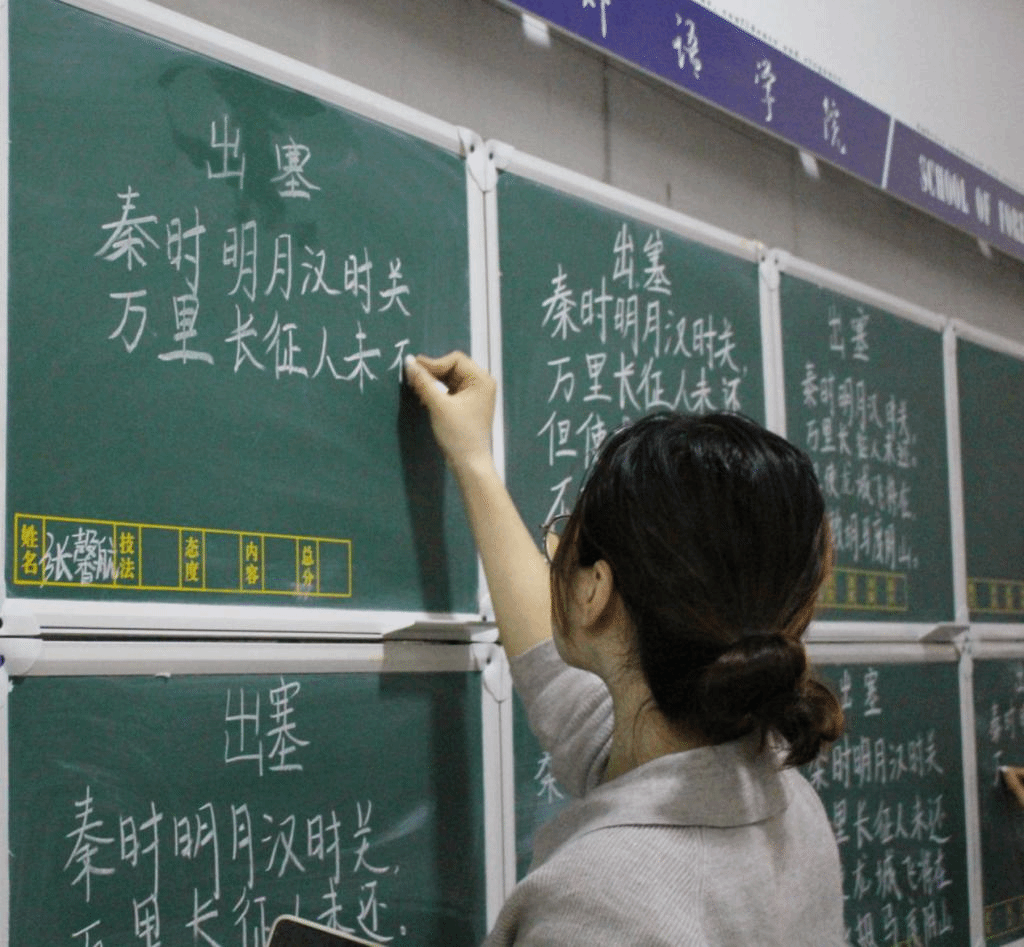 语学院
SCHOOL OF
出塞
秦时明月汉时关
万里长征人未
姓名 张馨航 技法 态度 内容 总分
出塞
秦时明月汉时关,
万里长征人未还
但使
不
出塞
秦时明月汉时关,
万里长征人未还。
使龙城飞将在
胡马度阴山。
出塞
秦时明月汉时关,
万里长征人未还.
出塞
秦时明月汉时关
里长征人未还
龙城飞将在
胡马度阴山
秦时